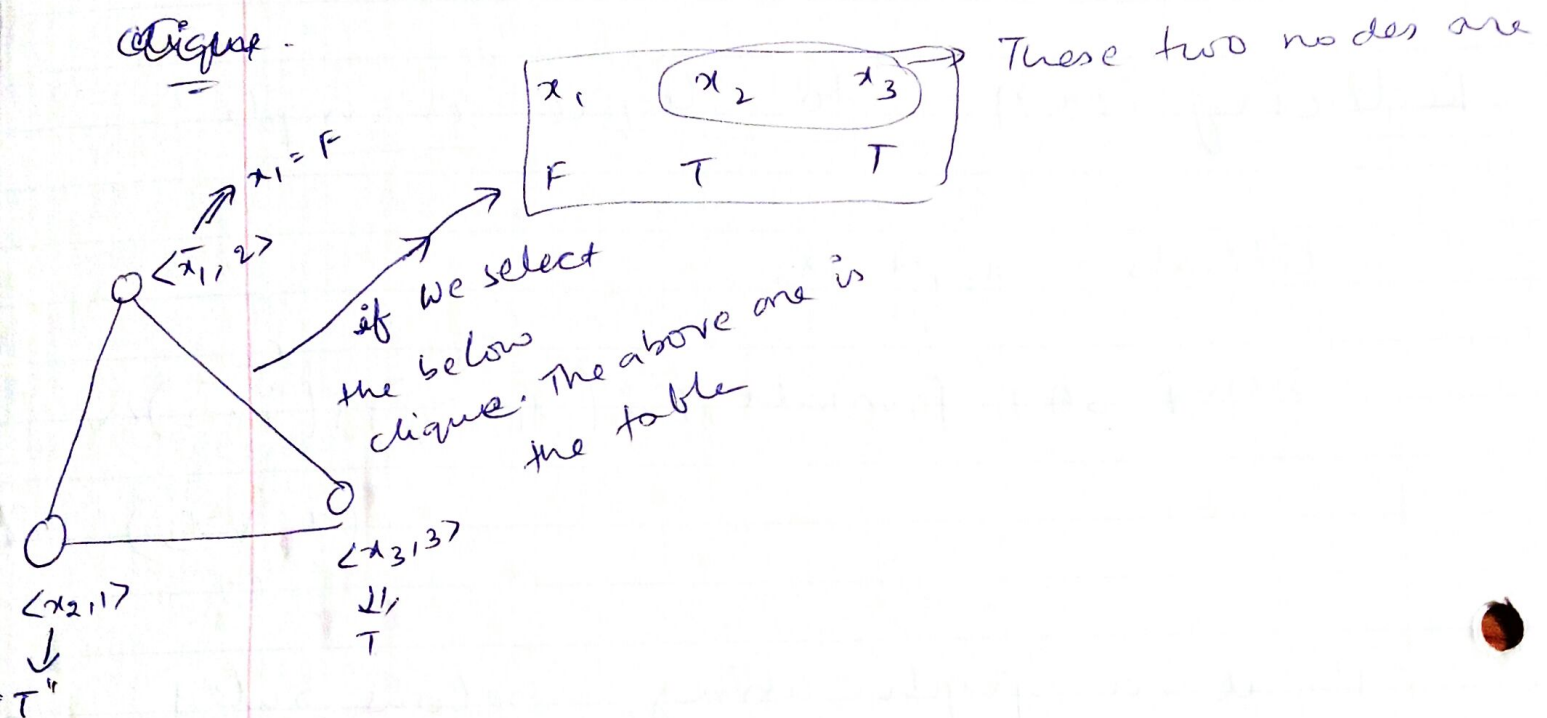 Clique.
x₁ x₂ x₃ → These two nodes are
F T T
x₁ = F
<x̄₁, 2>
if we select
the below
clique. The above one is
the table
<x₂, 1>
T"
<x₃, 3>
T